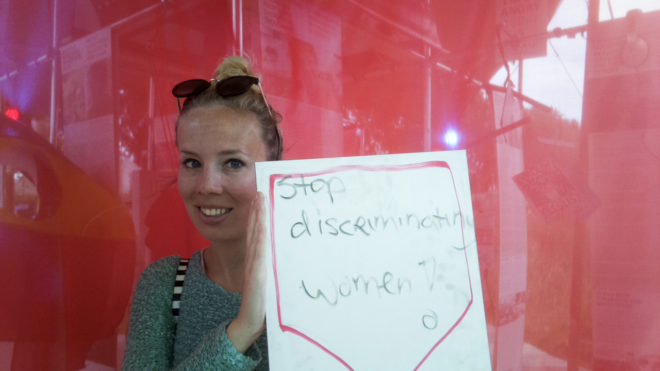 Stop
discriminating
women!